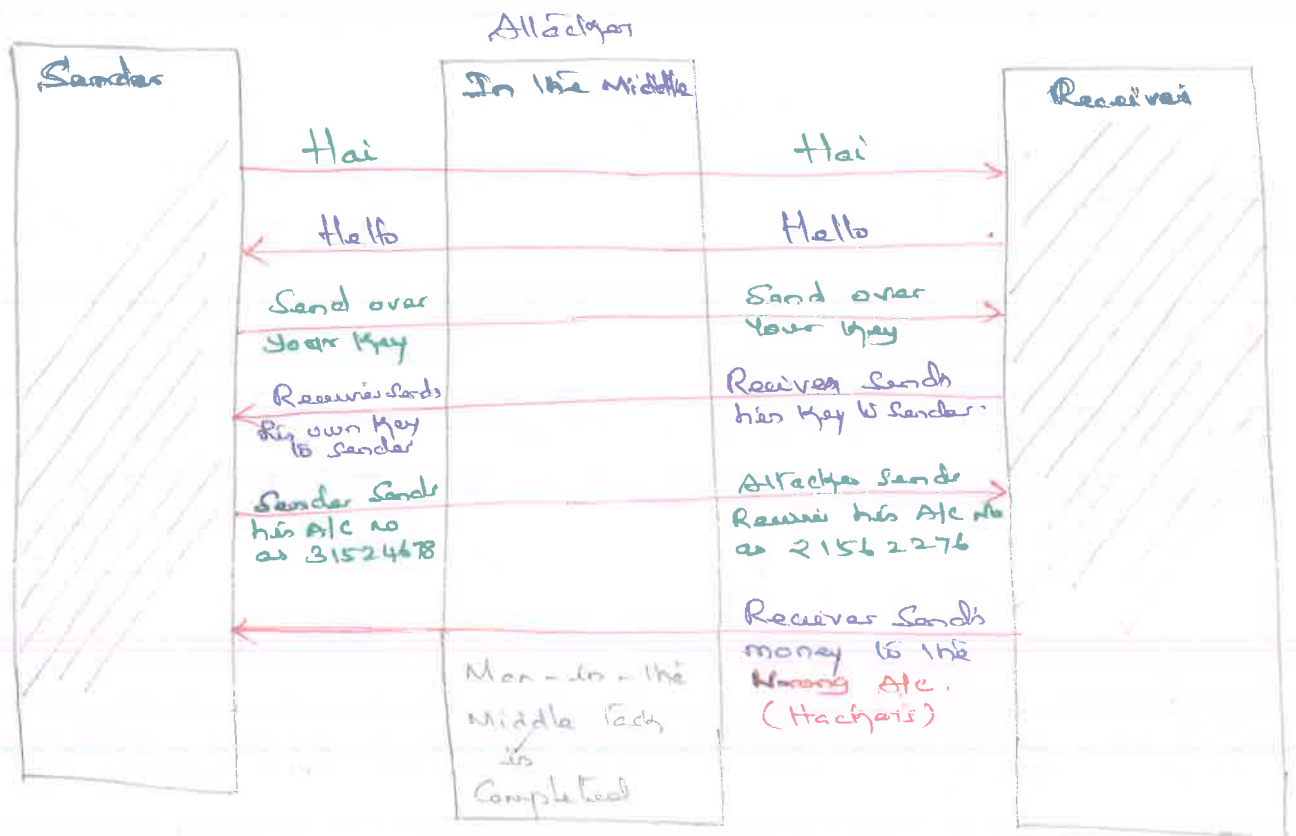 Attacker
Sender
In the Middle
Receiver
Hai
Hai
Hello
Hello
Send over
your Key
Send over
Your Key
Receiver Sends
his own Key
to Sender
Reciver Sends
his Key to Sender.
Sender Sends
his A/c no
as 31524678
Attacker Sends
Receiver his A/c No
as 21562276
Reciever Sends
money to the
Wrong A/c.
(Hackers)
Man-in-the
Middle
is
Completed